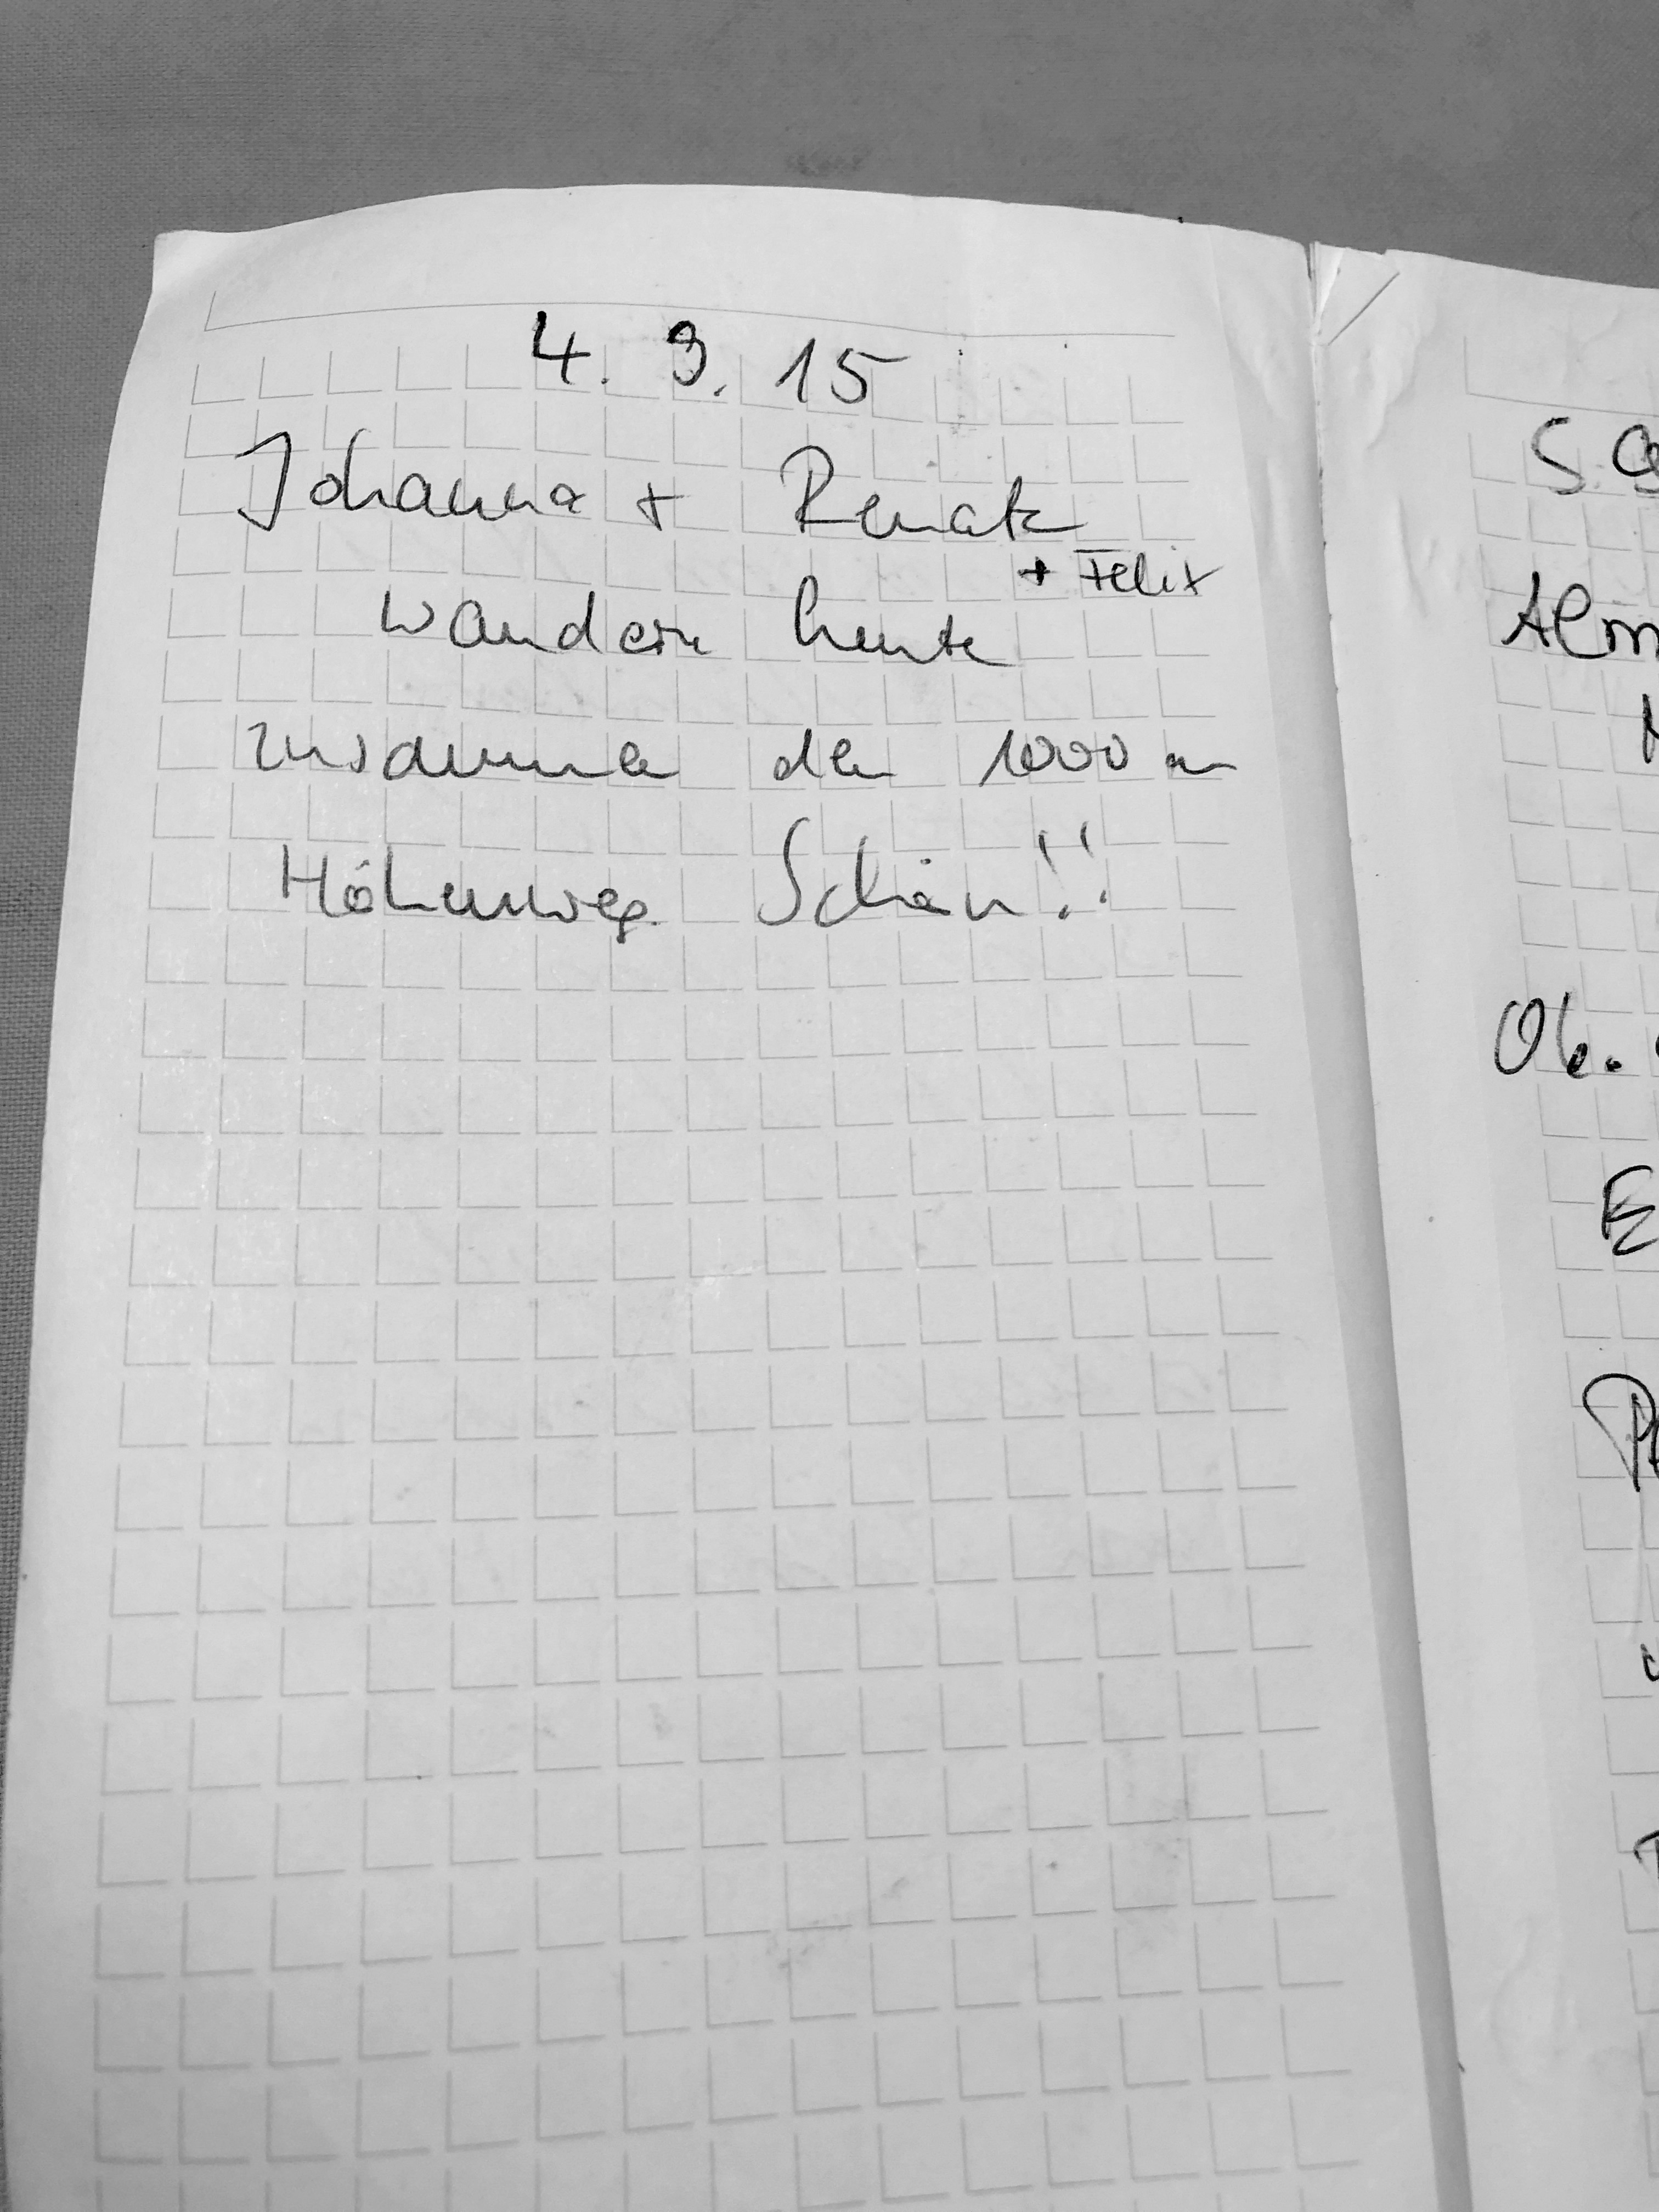 4. 9. 15
Johanna + Renate
+ Felix
wandern heute
zusammen den 1000 m
Höhenweg. Schön!!
5. 9
Alm
Ob.